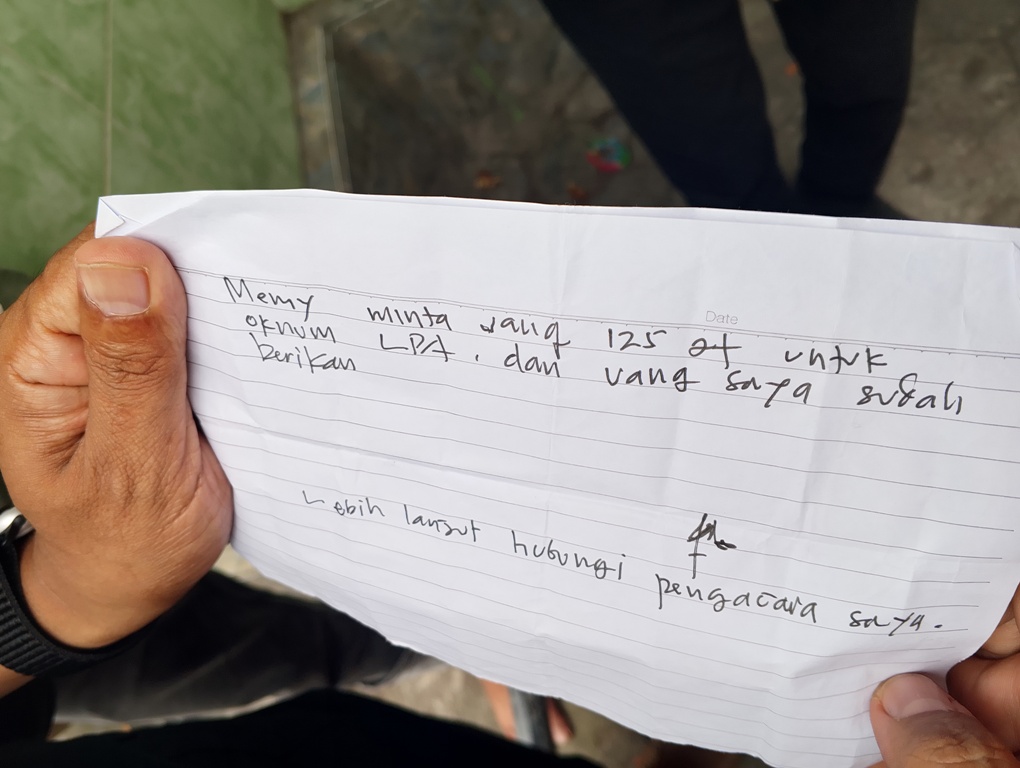 Date
Memy minta uang 125 jt untuk
oknum LPA. dan uang saya sudah
berikan
Lebih lanjut hubungi pengacara saya.